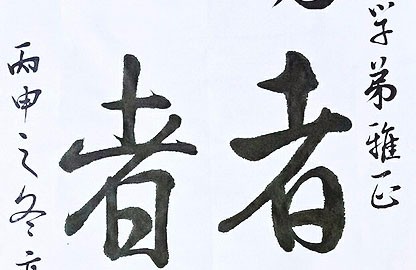 学弟雅正
者
者
丙申之冬